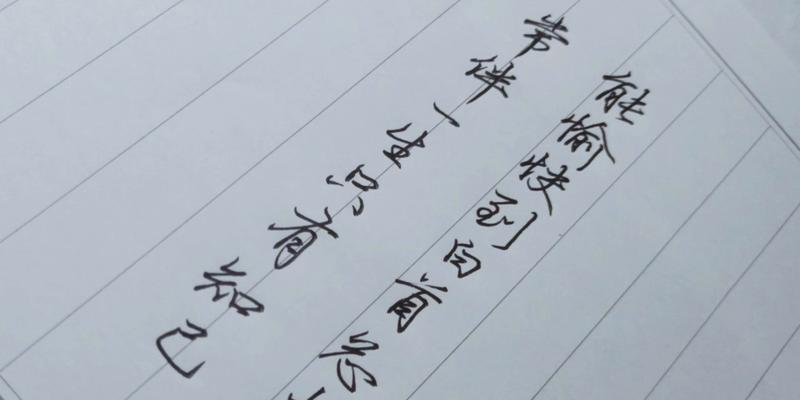 能愉快到白首
常伴一生只有知己